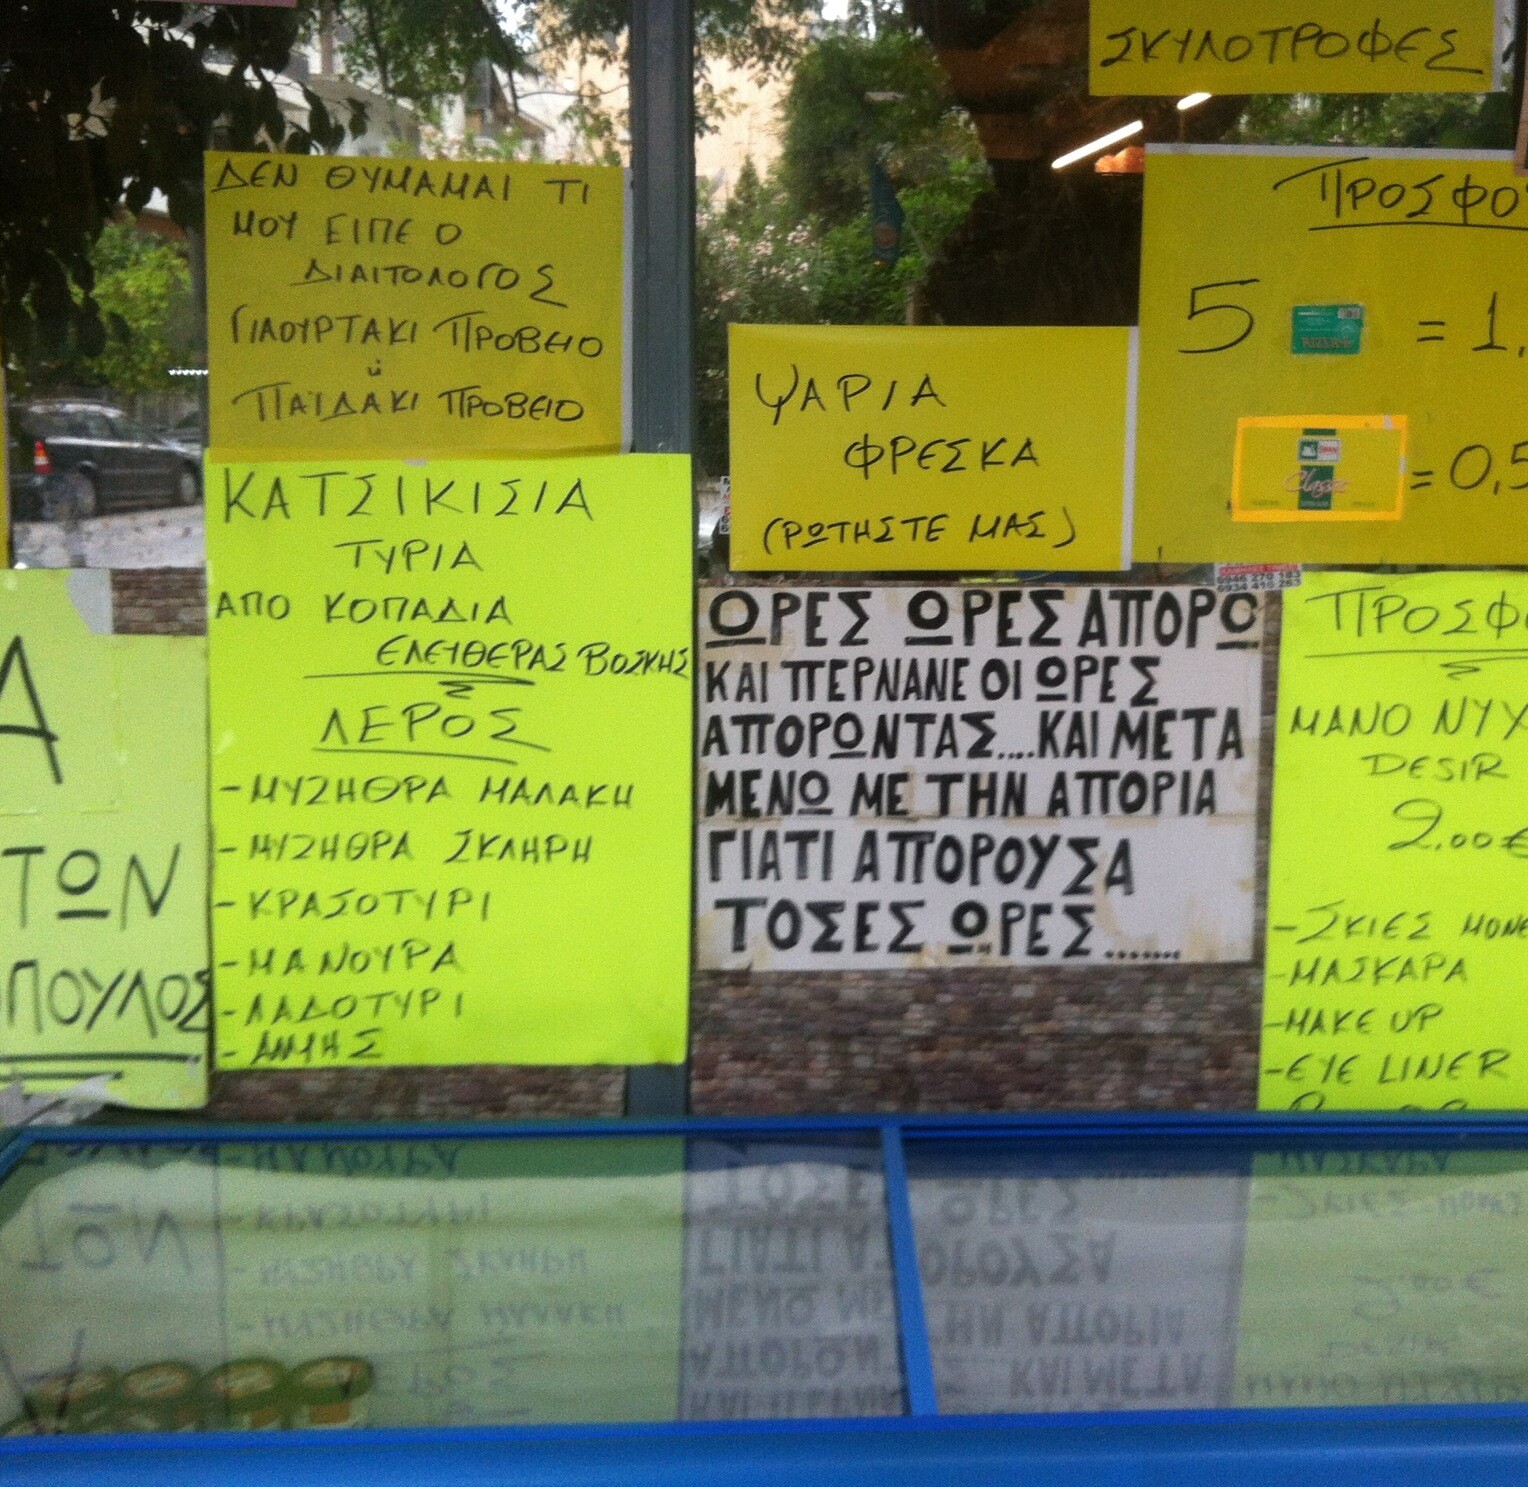 ΣΚΥΛΟΤΡΟΦΕΣ
ΔΕΝ ΘΥΜΑΜΑΙ ΤΙ
ΜΟΥ ΕΙΠΕ Ο
ΔΙΑΙΤΟΛΟΓΟΣ
ΓΙΑΟΥΡΤΑΚΙ ΠΡΟΒΕΙΟ
ή
ΠΑΪΔΑΚΙ ΠΡΟΒΕΙΟ
ΚΑΤΣΙΚΙΣΙΑ
ΤΥΡΙΑ
ΑΠΟ ΚΟΠΑΔΙΑ
ΕΛΕΥΘΕΡΑΣ ΒΟΣΚΗΣ
ΛΕΡΟΣ
- ΜΥΖΗΘΡΑ ΜΑΛΑΚΗ
- ΜΥΖΗΘΡΑ ΣΚΛΗΡΗ
- ΚΡΑΣΟΤΥΡΙ
- ΜΑΝΟΥΡΑ
- ΛΑΔΟΤΥΡΙ
Α
ΤΩΝ
ΠΟΥΛΟΣ
ΨΑΡΙΑ
ΦΡΕΣΚΑ
(ΡΩΤΗΣΤΕ ΜΑΣ)
ΩΡΕΣ ΩΡΕΣ ΑΠΟΡΩ
ΚΑΙ ΠΕΡΝΑΝΕ ΟΙ ΩΡΕΣ
ΑΠΟΡΩΝΤΑΣ....ΚΑΙ ΜΕΤΑ
ΜΕΝΩ ΜΕ ΤΗΝ ΑΠΟΡΙΑ
ΓΙΑΤΙ ΑΠΟΡΟΥΣΑ
ΤΟΣΕΣ ΩΡΕΣ.......
ΠΡΟΣΦΟ
5 = 1,
Classic = 0,5
6946 270 183
6934 410 263
ΠΡΟΣΦ
ΜΑΝΟ ΝΥΧ
DESIR
2.00€
- ΣΚΙΕΣ ΜΟΝΕ
- ΜΑΣΚΑΡΑ
- MAKE UP
- EYE LINER